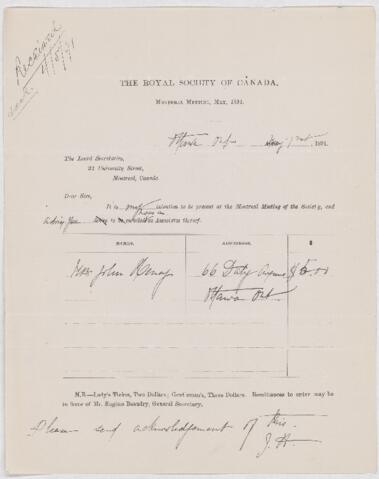 Received
THE ROYAL SOCIETY OF CANADA.
MONTREAL MEETING, MAY, 1891.
Ottawa Ont May 1891.
The Local Secretaries,
Montreal, Canada
Dear Sirs,
It is intention to be present at the Montreal Meeting of the Society, and
to be Associates thereof.
NAMES. ADDRESSES. $
John 66 Daly Avenue $5.00
Ottawa Ont.
N.B.—Lady's Ticket, Two Dollars; Gentleman's, Three Dollars. Remittances to order may be
in favor of Mr. Eugène Beaudry, General Secretary.
Please send acknowledgement of this.
J. H.